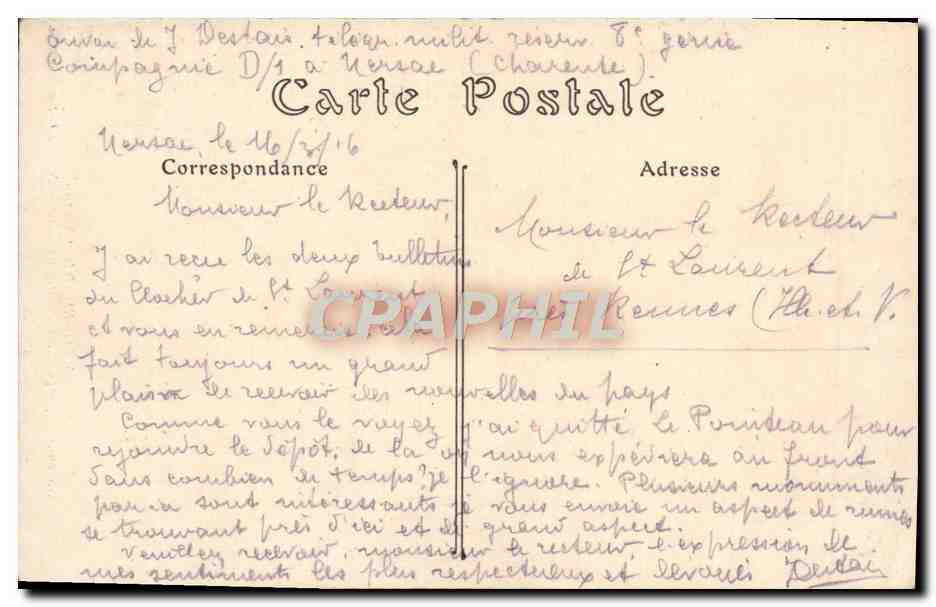 Envoi de J. Destais. télégr. milit. réserv. 8e génie
Compagnie D/1 à Nersac (Charente).
Carte Postale
Nersac, le 16/3/16
Correspondance
Monsieur le Recteur,
J'ai reçu les deux bulletins
du Clocher de St Laurent
et vous en remercie cela
fait toujours un grand
plaisir de recevoir des nouvelles du pays
Comme vous le voyez j'ai quitté Le Pouliguen pour
rejoindre le dépôt, de là on nous expédiera au front
dans combien de temps? je l'ignore. Plusieurs monuments
par ici sont intéressants je vous envoie un aspect de ruines
se trouvant près d'ici et de grand aspect.
Veuillez recevoir, monsieur le recteur, l'expression de
mes sentiments les plus respectueux et dévoués Destais
Adresse
Monsieur le Recteur
de St Laurent
près Rennes (Ille-et-V.
CPAPHIL